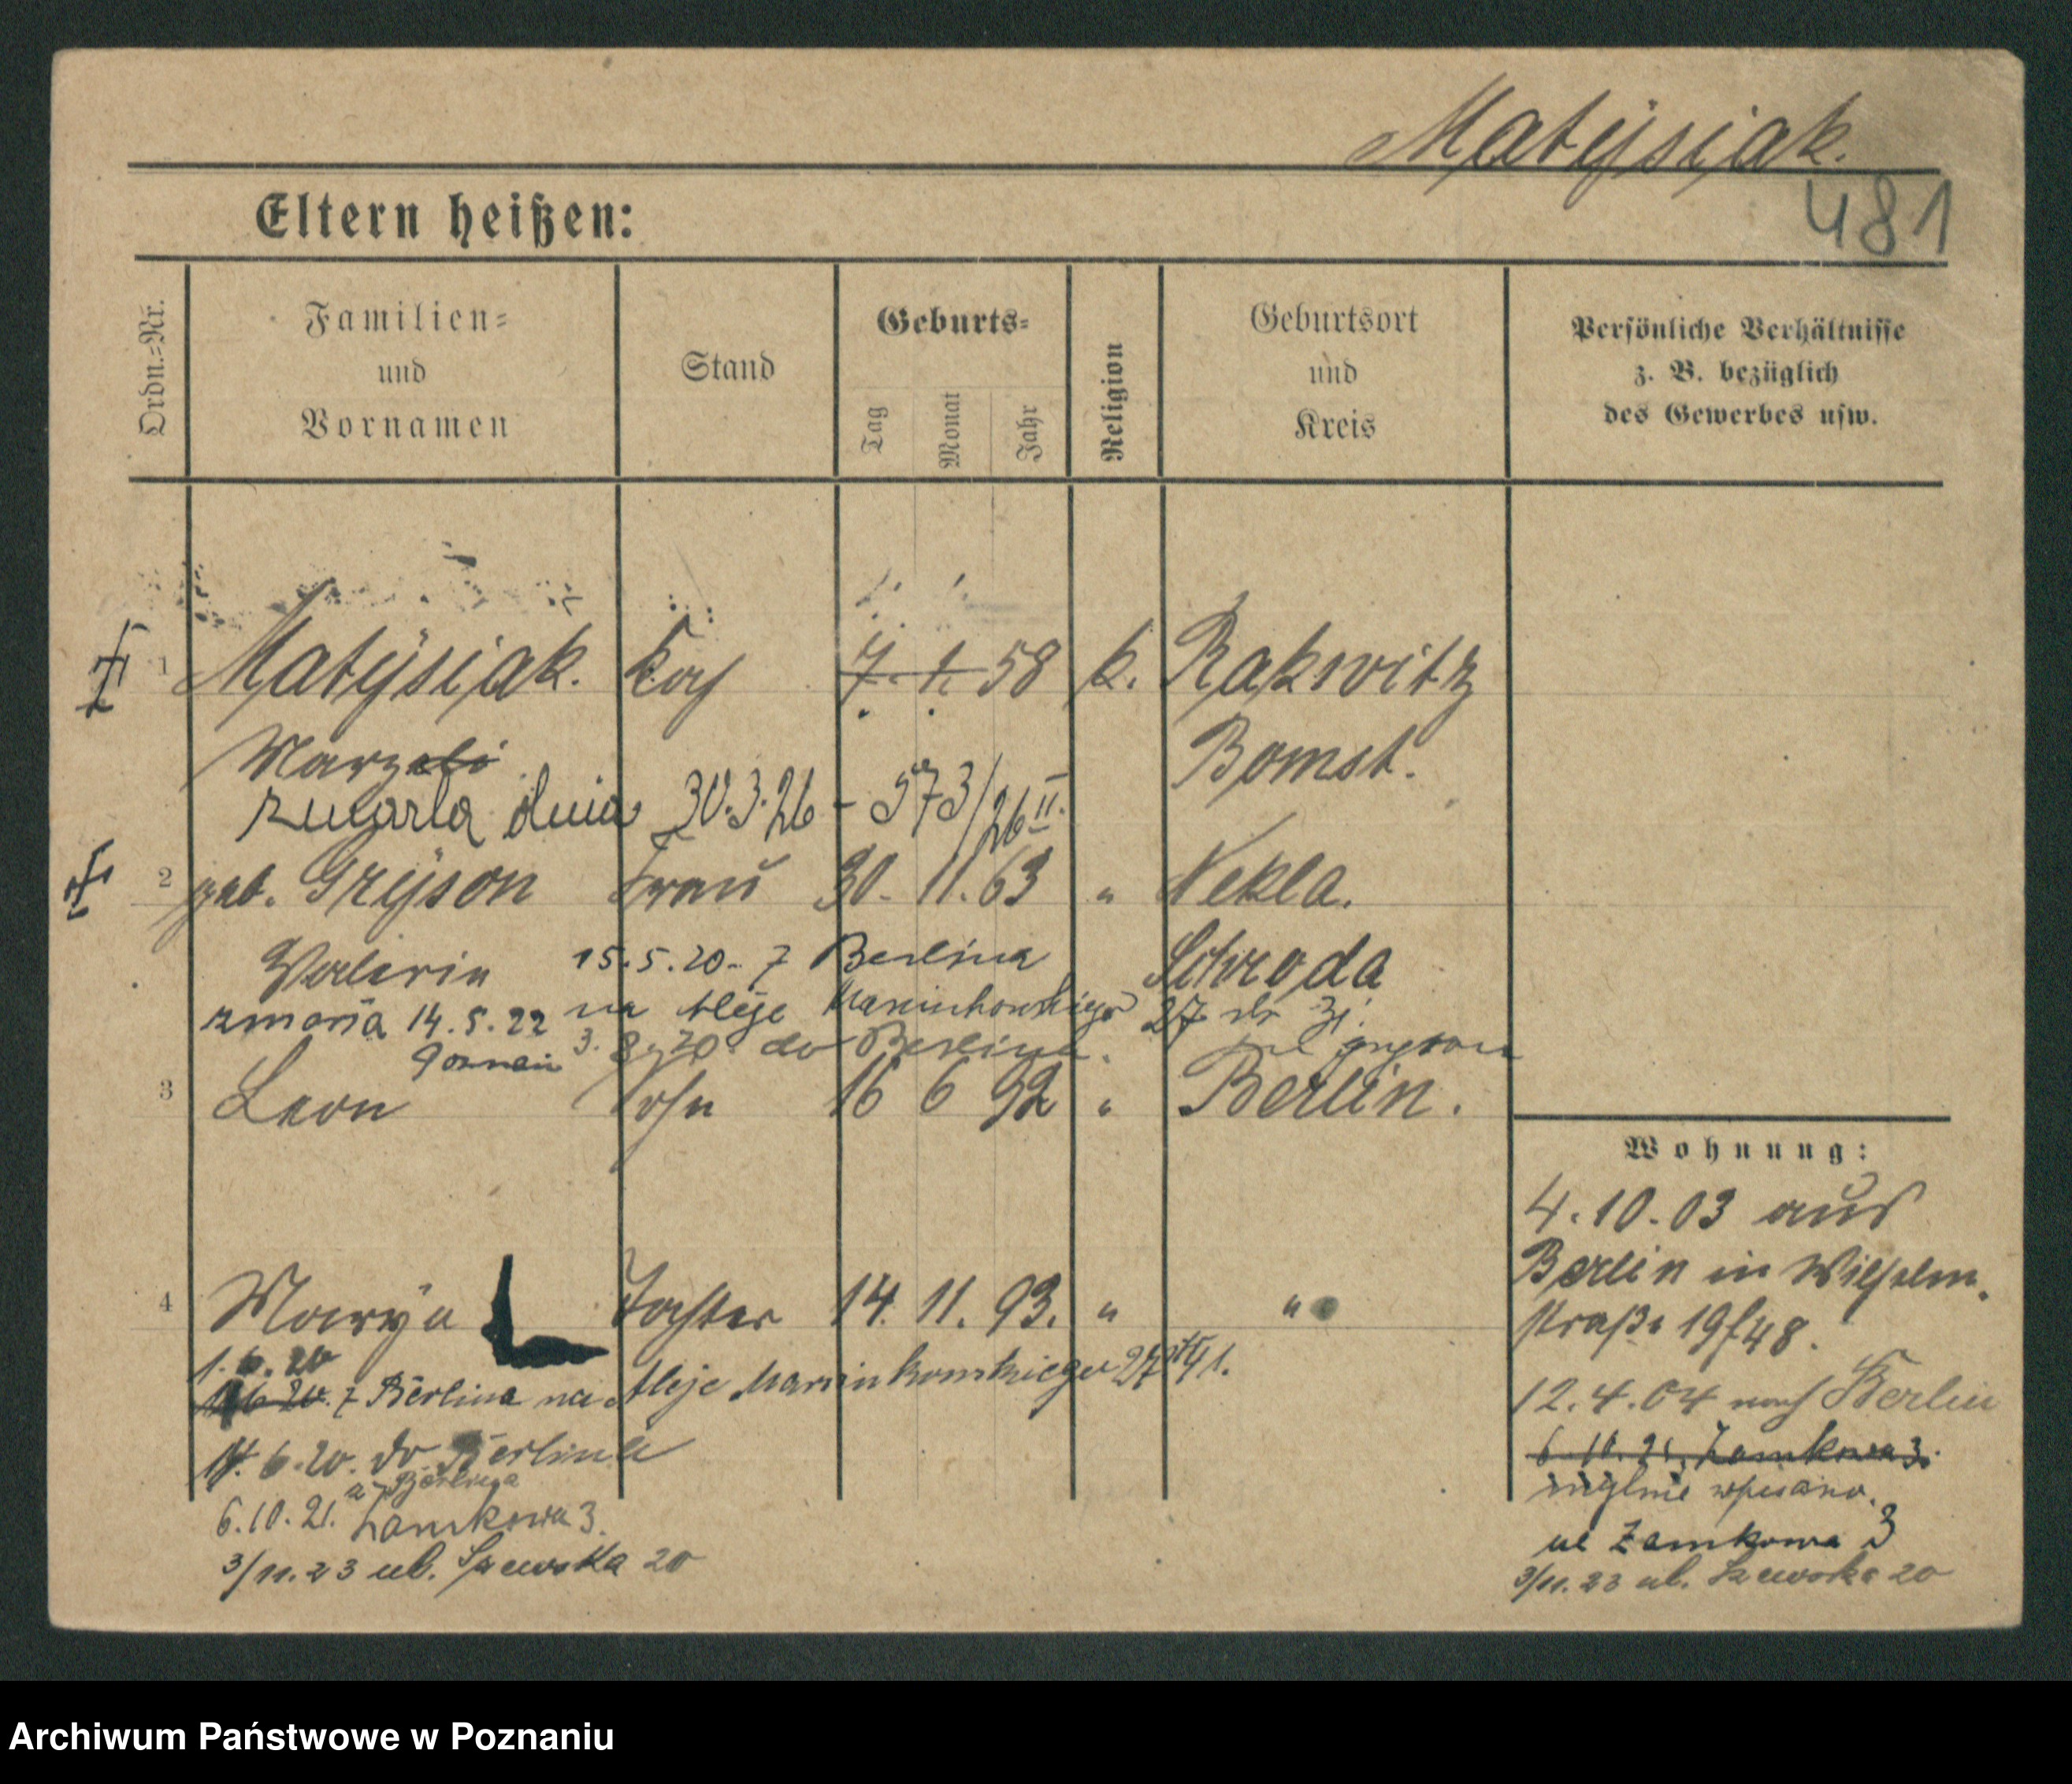 Matÿsiak.
481
Eltern heißen:
Ordn.=Nr.
Familien=
und
Vornamen
Stand
Geburts=
Tag
Monat
Jahr
Religion
Geburtsort
und
Kreis
Persönliche Verhältnisse
z. B. bezüglich
des Gewerbes usw.
1 Matÿsiak. Koch 7. 1. 58 k. Rakwitz
Bomst.
zmarła dnia 30.3.26 - 573/26 II.
2 geb. Grÿson Frau 30. 11. 63 " Nekla.
Schroda
15.5.20. z Berlina
zmarła 14.5.22 na Aleje Marcinkowskiego 27
3. 8. 20. do Berlina.
3 Leon Sohn 16 6 92 " Berlin.
4 Marÿa Tochter 14. 11. 93. " "
1.6.20
z Berlina na Aleje Marcinkowskiego 27
14. 6. 20. do Berlina
z Berlina
6.10.21. Zamkowa 3.
3/11.23 ul. Szewska 20
Wohnung:
4.10.03 aus
Berlin in Wilhelm-
straße 19 f 48.
12.4.04 nach Berlin
6.10.21. Zamkowa 3.
mylnie wpisano.
ul Zamkowa 3
3/11.23 ul. Szewska 20
Archiwum Państwowe w Poznaniu